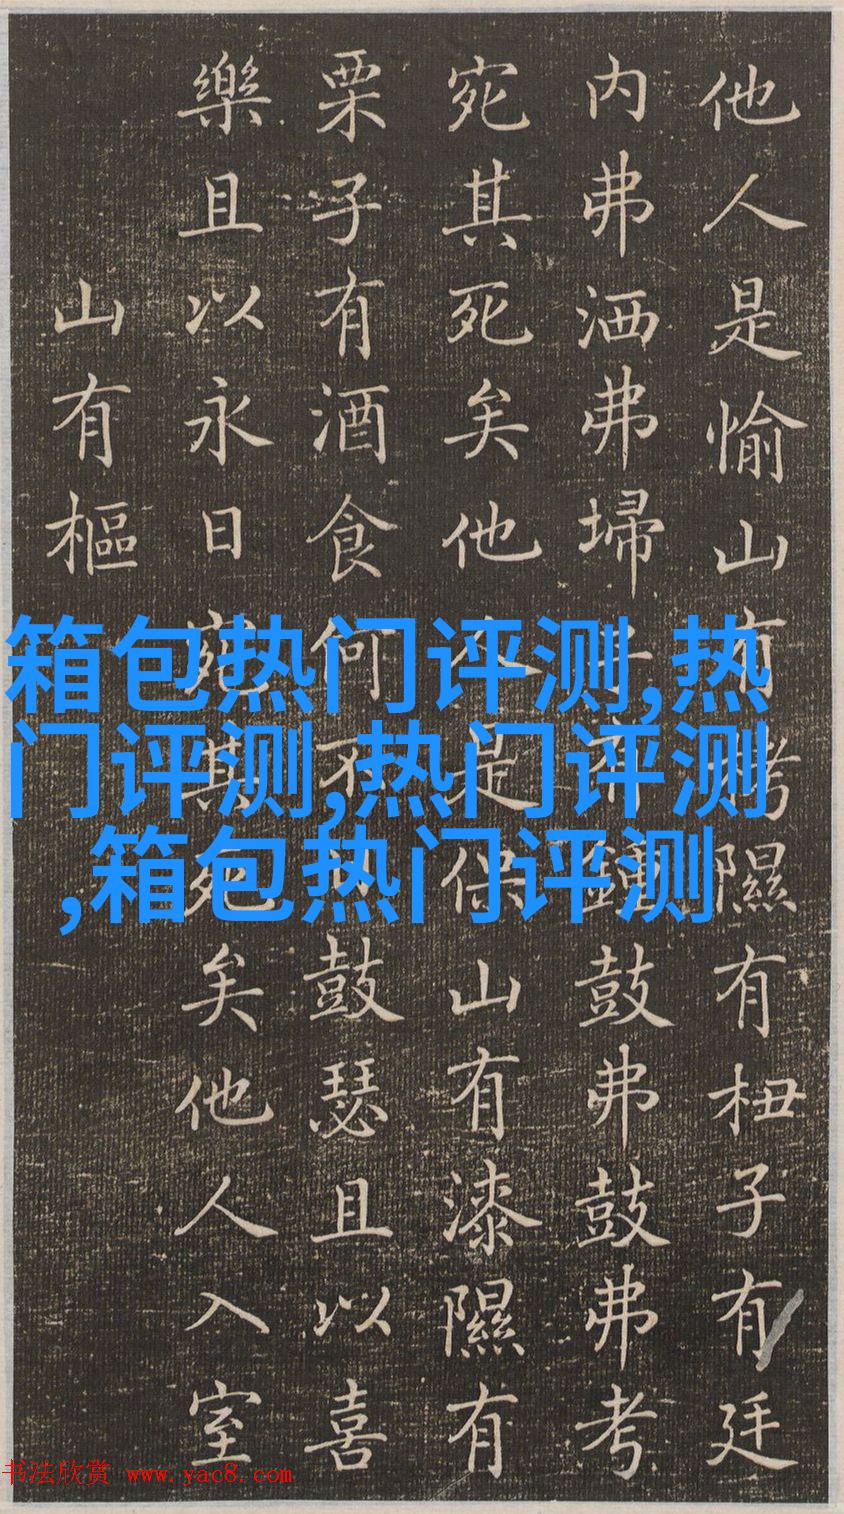 他人是愉山有栲隰有杻子有廷
内弗洒弗埽子有鍾鼓弗鼓弗考
宛其死矣他人是保山有漆隰有
栗子有酒食何不日鼓瑟且以喜
樂且以永日宛其死矣他人入室
山有樞
箱包热门评测,热
门评测,热门评测
,箱包热门评测
书法欣赏 www.yac8.com